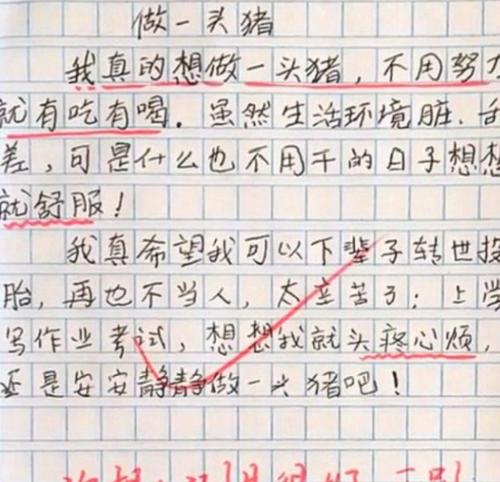 做一头猪
我真的想做一头猪，不用努力
就有吃有喝。虽然生活环境脏、
差，可是什么也不用干的日子想想
就舒服！
我真希望我可以下辈子转世投
胎，再也不当人，太辛苦了；上学
写作业考试，想想我就头疼心烦，
还是安安静静做一头猪吧！